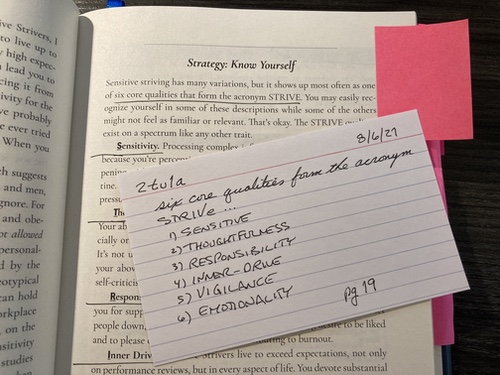 ve Strivers, I
to live up to
high expec-
lead you to
cing it from
tivity for the
e probably
e ever tried
When you
h suggests
and men,
gnore. For
and obe-
ot allowed
personal-
d by the
eotypical
can hold
orkplace
, on the
nsitivity
studies
Strategy: Know Yourself
Sensitive striving has many variations, but it shows up most often as one
of six core qualities that form the acronym STRIVE. You may easily rec-
ognize yourself in some of these descriptions while some of the others
might not feel as familiar or relevant. That's okay. The STRIVE
exist on a spectrum like any other trait.
Sensitivity. Processing complex
because you're
pening
time
press
Th
Your ab
cially or
It's not u
your abov
self-critici
Respon
you for supp
people down, desire to be liked
and to please leading to burnout.
Inner Driv Strivers live to exceed expectations, not only
on performance reviews, but in every aspect of life. You devote substantial
2tu1a
8/6/21
six core qualities form the acronym
STRIVE ...
1) SENSITIVE
2) THOUGHTFULNESS
3) RESPONSIBILITY
4) INNER-DRIVE
5) VIGILANCE
6) EMOTIONALITY
pg 19